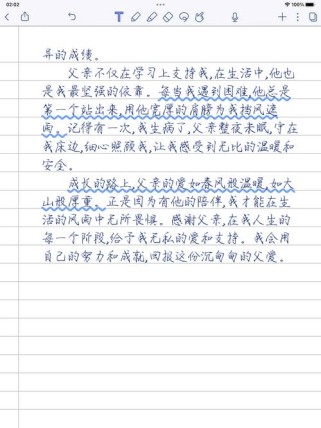 02:02
100%
异的成绩。
父亲不仅在学习上支持我,在生活中,他也
是我最坚强的依靠。每当我遇到困难,他总是
第一个站出来,用他宽厚的肩膀为我挡风遮
雨。记得有一次,我生病了,父亲整夜未眠,守在
我床边,细心照顾我,让我感受到无比的温暖和
安全。
成长的路上,父亲的爱如春风般温暖,如大
山般厚重。正是因为有他的陪伴,我才能在生
活的风雨中无所畏惧。感谢父亲,在我人生的
每一个阶段,给予我无私的爱和支持。我会用
自己的努力和成就,回报这份沉甸甸的父爱。